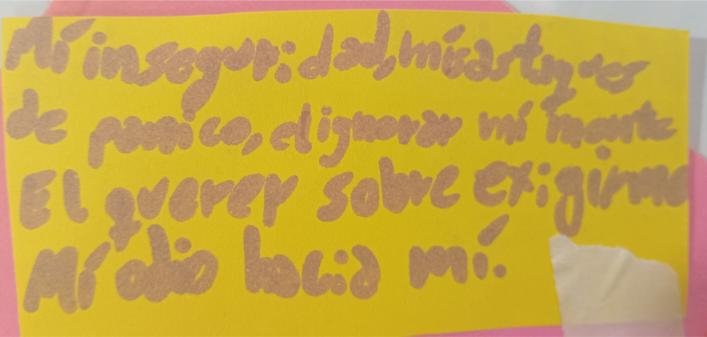 Mí inseguridad, mis astques
de panico, el ignorar mi mente
El querer sobre exigirme
Mí odio hacia mí.